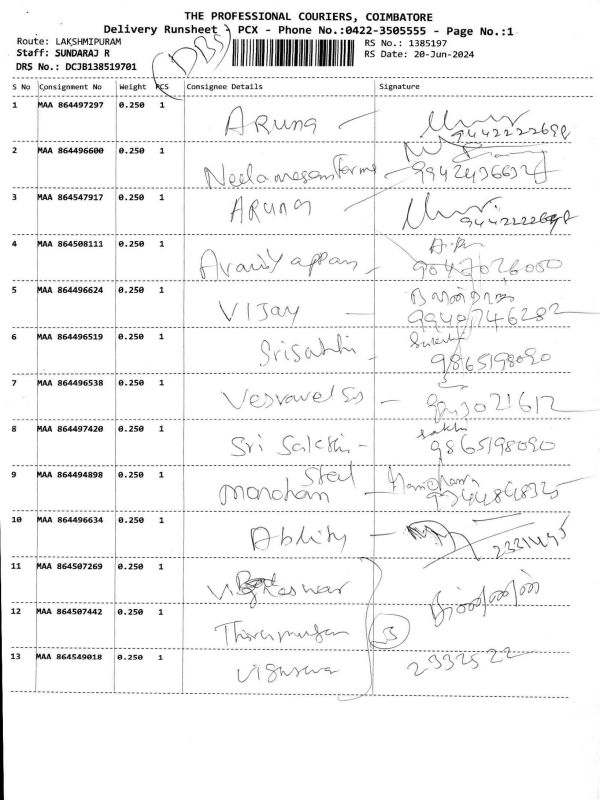 THE PROFESSIONAL COURIERS, COIMBATORE
Delivery Runsheet - PCX - Phone No.:0422-3505555 - Page No.:1
Route: LAKSHMIPURAM
Staff: SUNDARAJ R
DRS No.: DCJB138519701
(DBS)
RS No.: 1385197
RS Date: 20-Jun-2024
S No Consignment No Weight PCS Consignee Details Signature
1 MAA 864497297 0.250 1 Aruna 9442222698
2 MAA 864496600 0.250 1 Neelamegam Farms
3 MAA 864547917 0.250 1 Aruna 9442222698
4 MAA 864508111 0.250 1
5 MAA 864496624 0.250 1 Vijay 9940746282
6 MAA 864496519 0.250 1 Srisakthi 9865198090
7 MAA 864496538 0.250 1
8 MAA 864497420 0.250 1 Sri Sakthi - sakthi 9865198090
9 MAA 864494898 0.250 1 Manoharn Steel 9344848325
10 MAA 864496634 0.250 1 Ablity
11 MAA 864507269 0.250 1
12 MAA 864507442 0.250 1 3
13 MAA 864549018 0.250 1 2332522